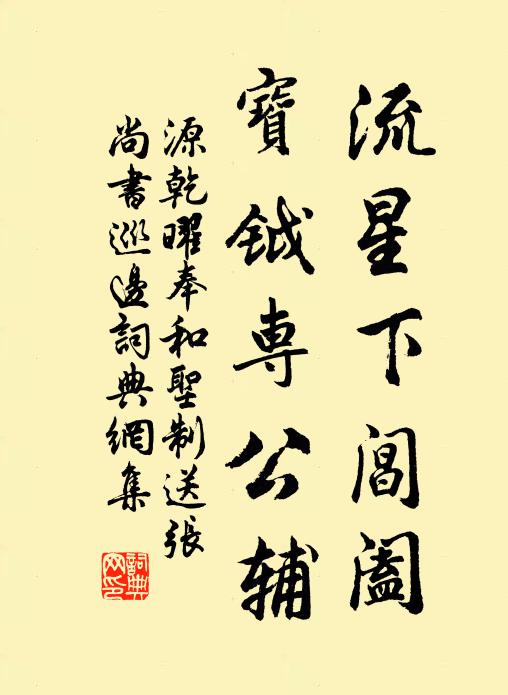 流星下閶阖
寶钺専公辅
源乾曜奉和聖制送張
尚書巡邊詞典網集
詞典網印